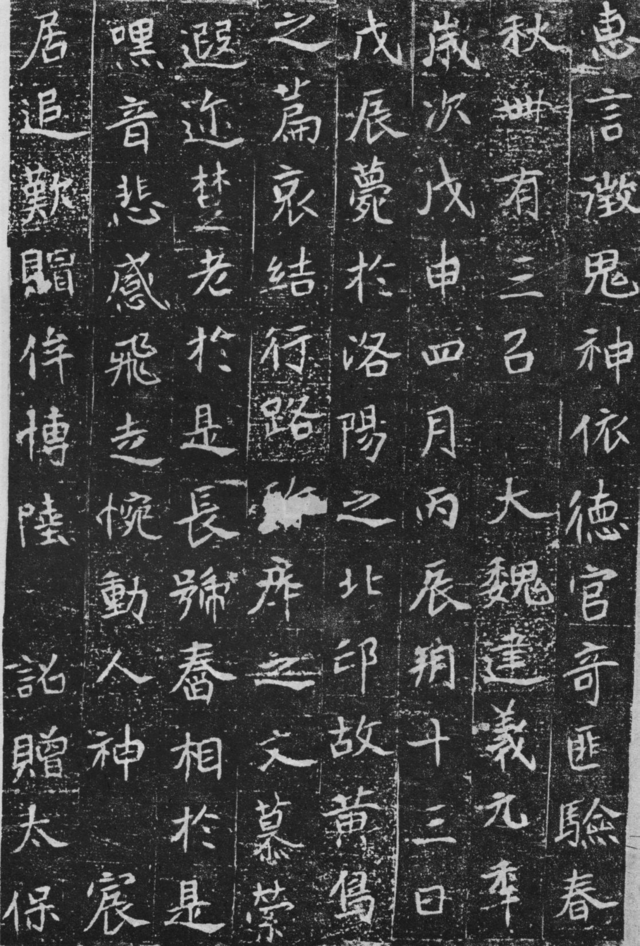 惠言澂鬼神依德官奇匪驗春
秋卌有三召 大魏建義元秊
歲次戊申四月丙辰朔十三日
戊辰薨於洛陽之北邙故黄鳥
之篇哀結行路之文慕縈
遐迩楚老於是長號舂相於是
嘿音悲感飛走惋動人神 宸
居追歎賵侔博陸 詔贈太保